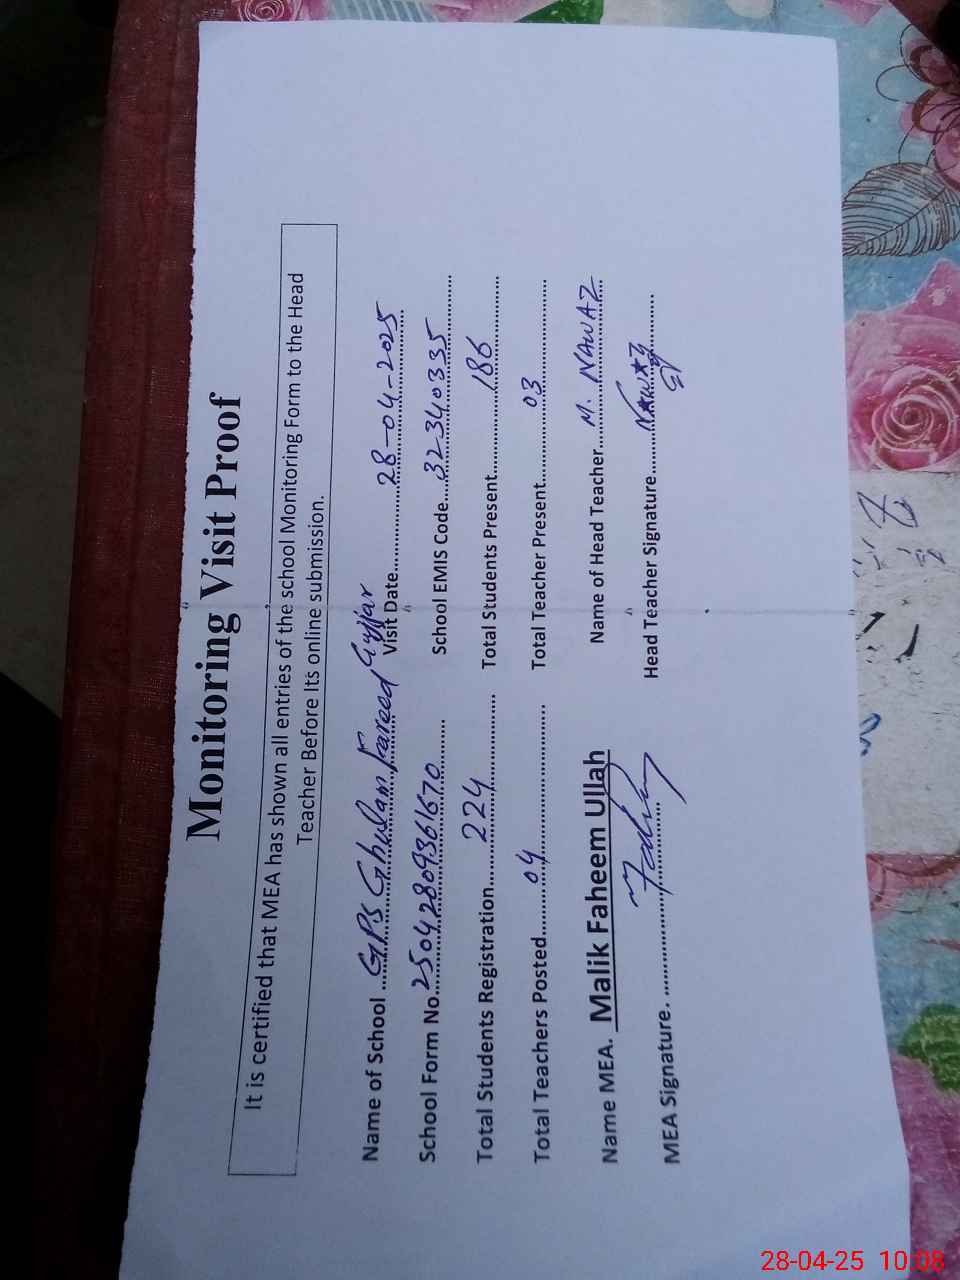 Monitoring Visit Proof
It is certified that MEA has shown all entries of the school Monitoring Form to the Head
Teacher Before Its online submission.
Name of School ...GPS Ghulam Fareed Gujjar Visit Date...28-04-2025
School Form No...25042809361670... School EMIS Code...32340335
Total Students Registration...224... Total Students Present...186
Total Teachers Posted...04... Total Teacher Present...03
Name MEA. Malik Faheem Ullah Name of Head Teacher...M. NAWAZ
MEA Signature. ... Head Teacher Signature...NAWAZ
28-04-25 10:08